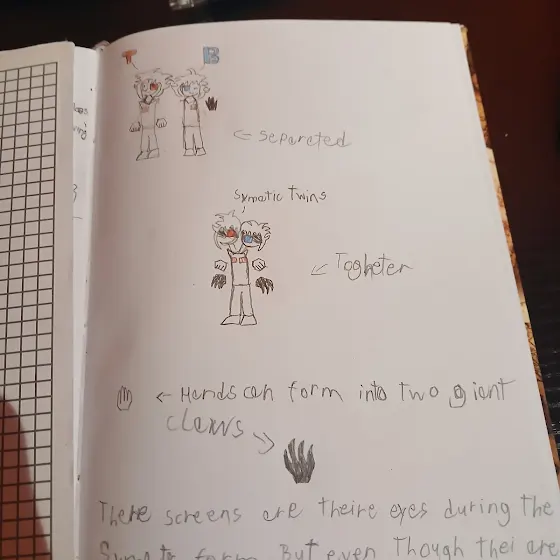 T B
← Separeted
Symatic Twins
← Togheter
← Hands can form into two giant
claws →
There screens are theire eyes during the
form. But even Though thei are